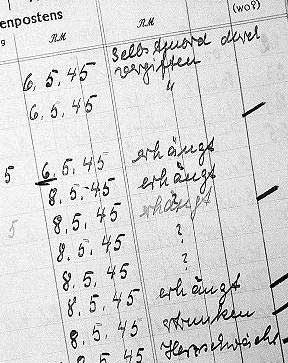 enpostens
(wo?)
g RM RM
Selbstmord durch
6. 5. 45 vergiften
6. 5. 45 "
5 6. 5. 45 erhängt
8. 5. 45 erhängt
5 8. 5. 45 erhängt
8. 5. 45 ?
8. 5. 45 ?
8. 5. 45 erhängt
8. 5. 45 ertrunken
8. 5. 45 Herzschwäche